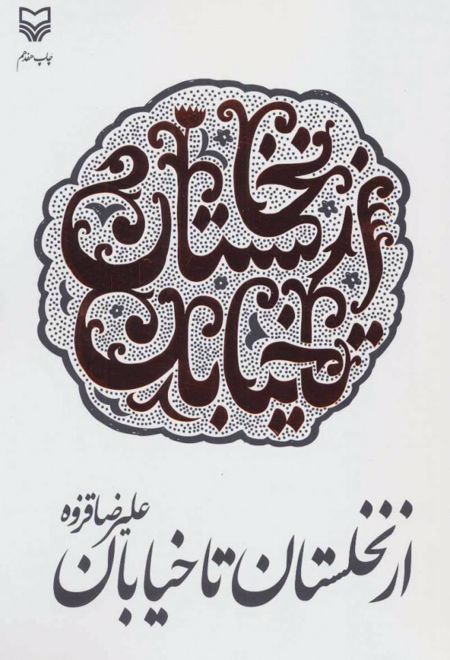 چاپ هفدهم
از نخلستان
تا خیابان
علیرضا قزوه
از نخلستان تا خیابان